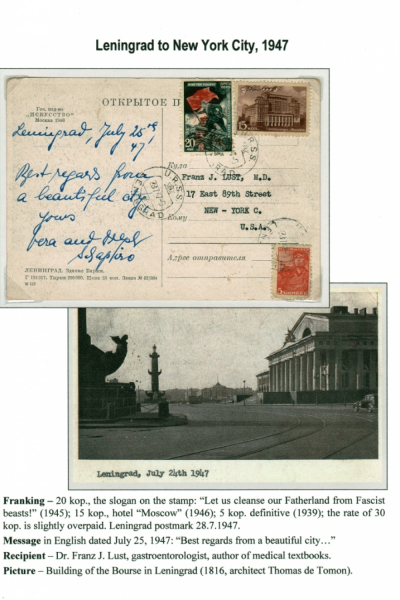 Leningrad to New York City, 1947
Гос. изд-во
"ИСКУССТВО"
Москва 1946
ОТКРЫТОЕ П
20
15
Leningrad, July 25th,
47
Best regards from
a beautiful city
yours
Vera and
Shapiro
Куда
Franz J. LUST, M.D.
17 East 89th Street
NEW - YORK C.
U.S.A.
Кому
Адрес отправителя
ЛЕНИНГРАД. Здание Биржи.
5
Leningrad, July 24th 1947
Franking – 20 kop., the slogan on the stamp: “Let us cleanse our Fatherland from Fascist
beasts!” (1945); 15 kop., hotel “Moscow” (1946); 5 kop. definitive (1939); the rate of 30
kop. is slightly overpaid. Leningrad postmark 28.7.1947.
Message in English dated July 25, 1947: “Best regards from a beautiful city…”
Recipient – Dr. Franz J. Lust, gastroentorologist, author of medical textbooks.
Picture – Building of the Bourse in Leningrad (1816, architect Thomas de Tomon).